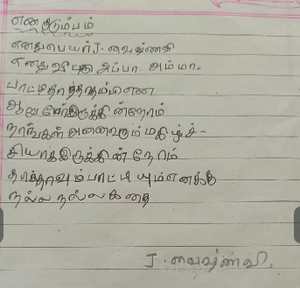 என குடும்பம்
எனது பெயர் J. வைஷ்ணவி
எனது வீட்டில் அப்பா அம்மா.
பாட்டி தாத்தா தம்பி என
ஆறு பேர் இருக்கின்றோம்
நாங்கள் அனைவரும் மகிழ்ச்-
சியாக இருக்கின்றோம்
தாத்தாவும் பாட்டியும் எனக்கு
நல்ல நல்ல கதை
J. வைஷ்ணவி.